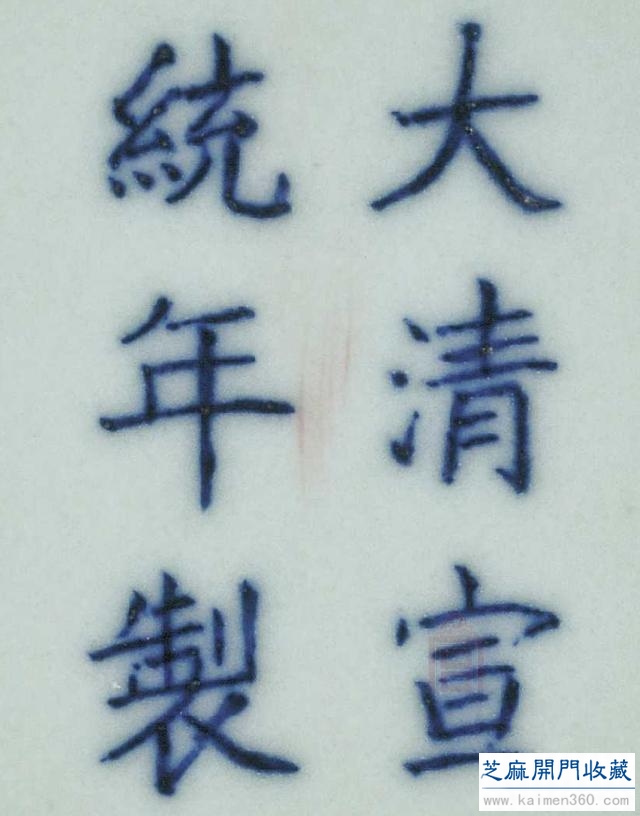 大清宣
統年製
芝麻開門收藏
www.kaimen360.com